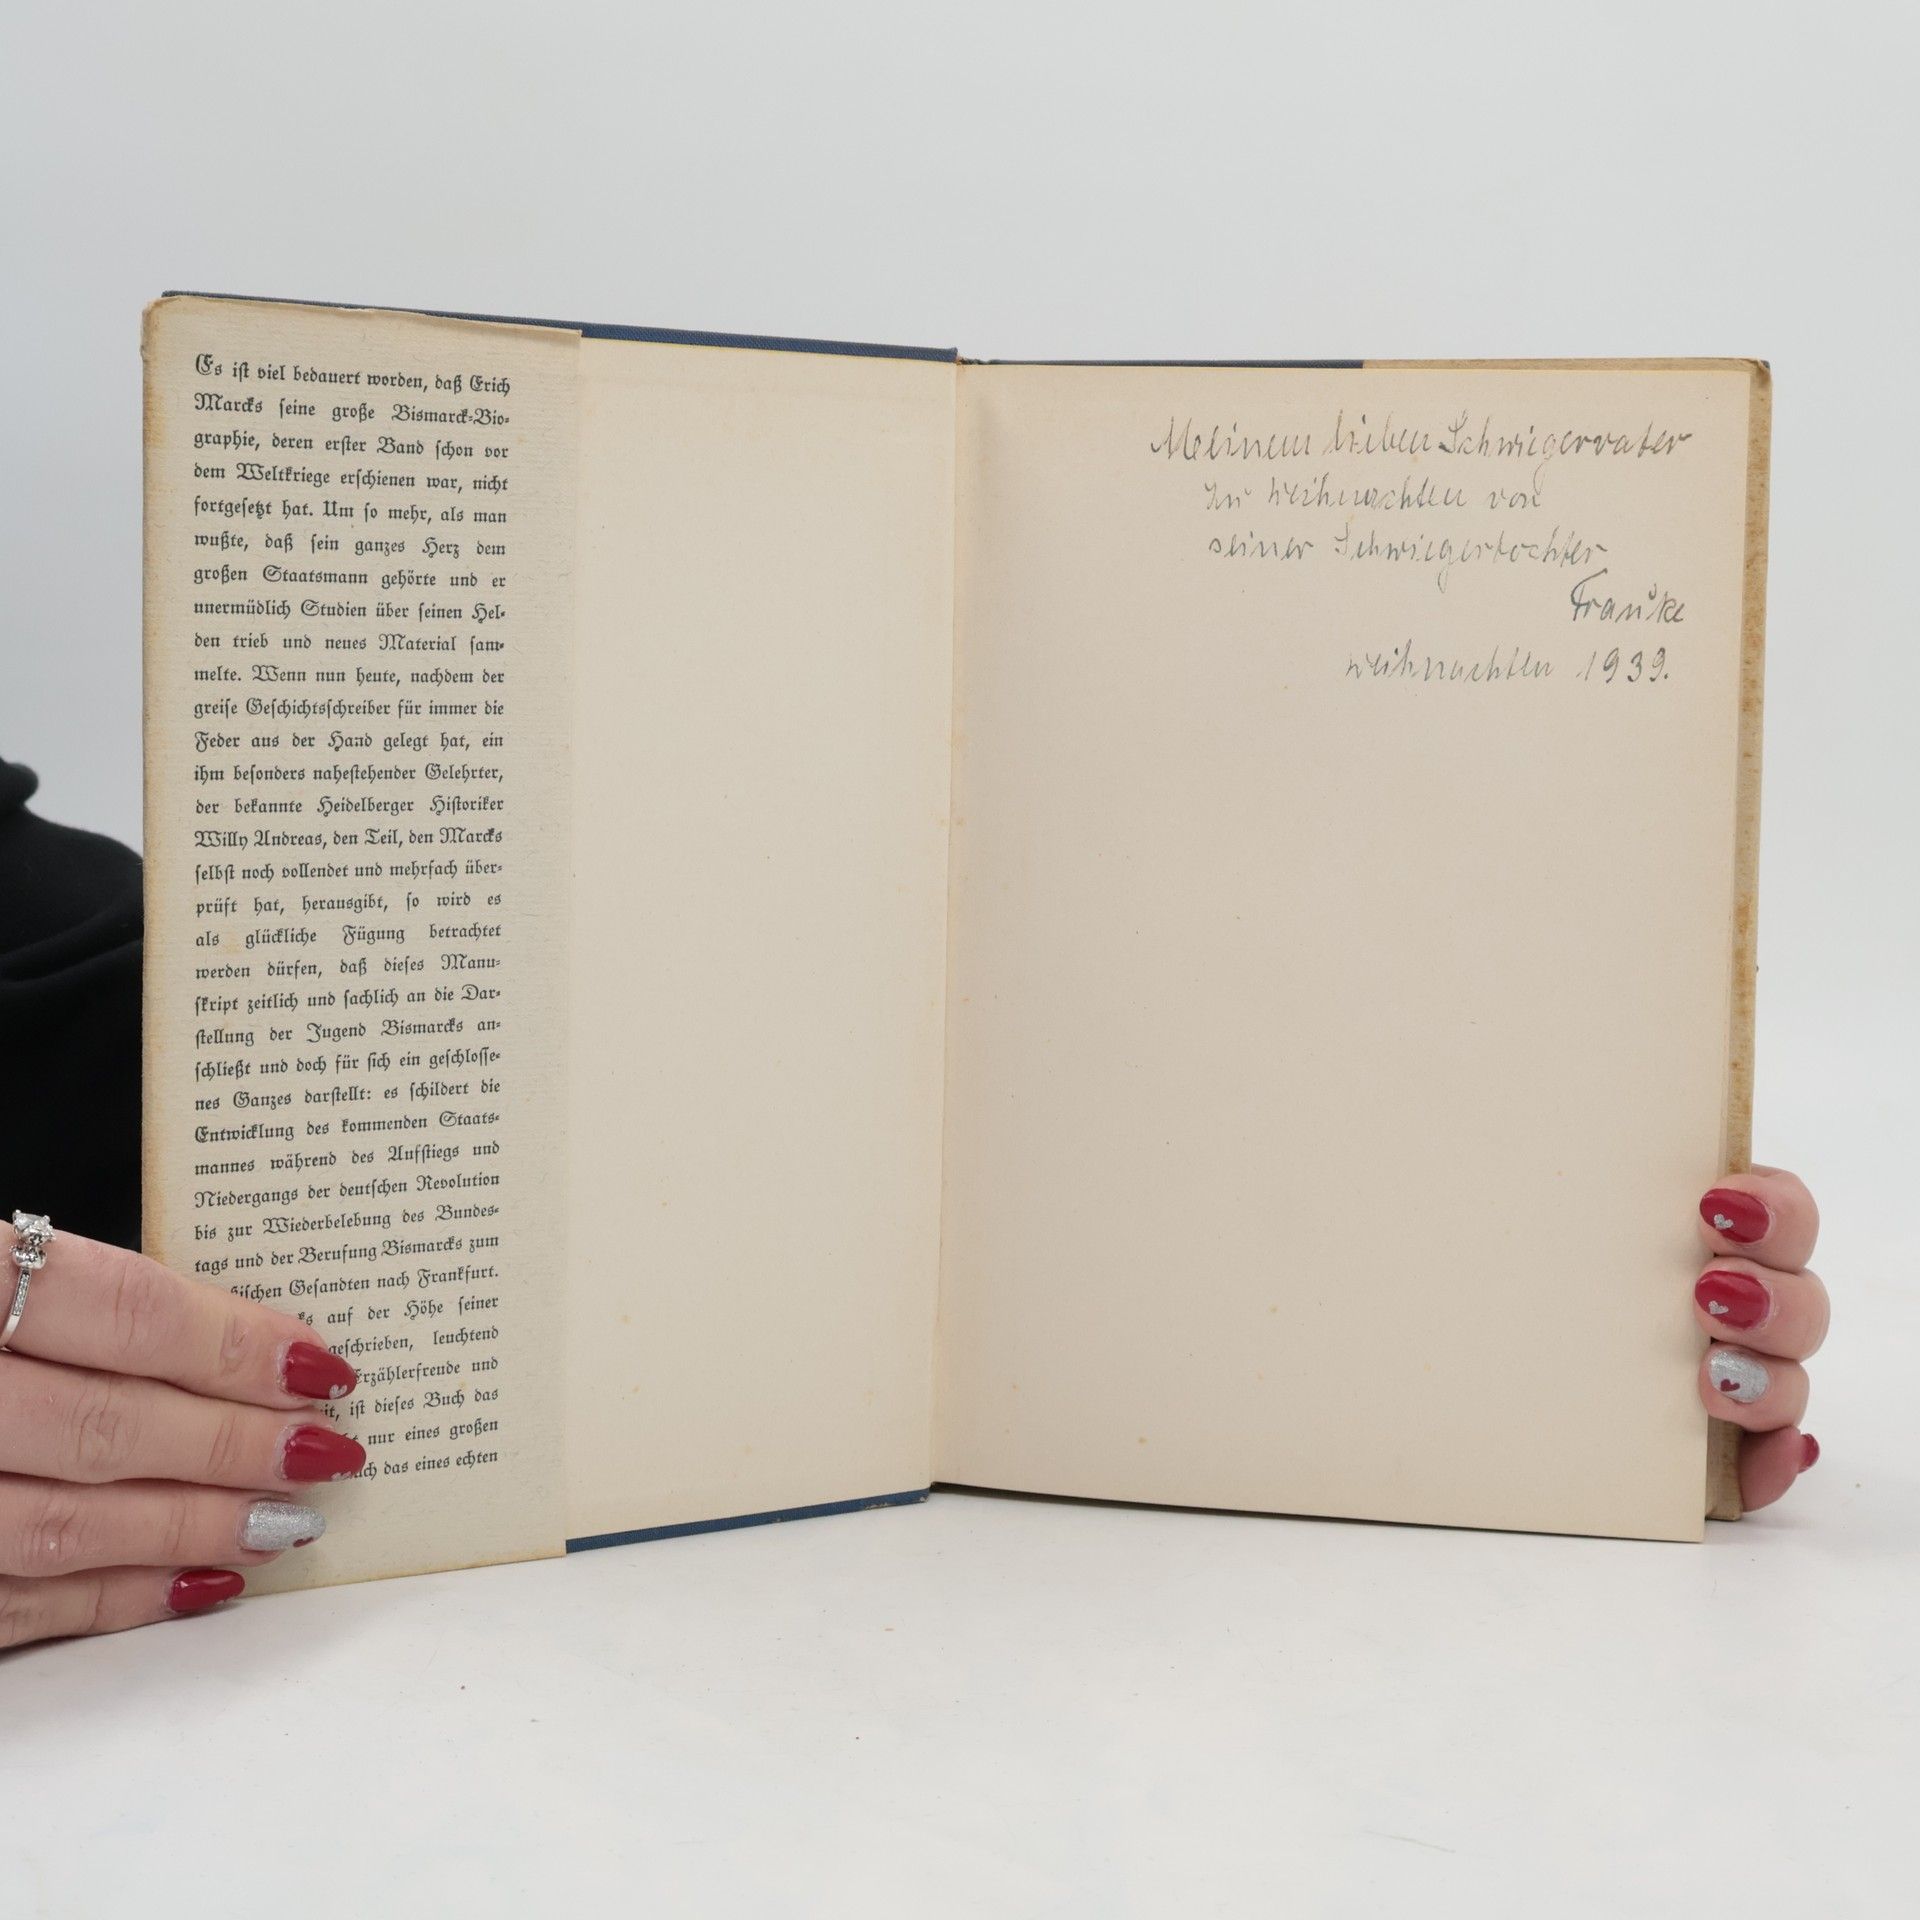 Es ist viel bedauert worden, daß Erich
Marcks seine große Bismarck-Bio-
graphie, deren erster Band schon vor
dem Weltkriege erschienen war, nicht
fortgesetzt hat. Um so mehr, als man
wußte, daß sein ganzes Herz dem
großen Staatsmann gehörte und er
unermüdlich Studien über seinen Hel-
den trieb und neues Material sam-
melte. Wenn nun heute, nachdem der
greise Geschichtsschreiber für immer die
Feder aus der Hand gelegt hat, ein
ihm besonders nahestehender Gelehrter,
der bekannte Heidelberger Historiker
Willy Andreas, den Teil, den Marcks
selbst noch vollendet und mehrfach über-
prüft hat, herausgibt, so wird es
als glückliche Fügung betrachtet
werden dürfen, daß dieses Manu-
skript zeitlich und sachlich an die Dar-
stellung der Jugend Bismarcks an-
schließt und doch für sich ein geschlosse-
nes Ganzes darstellt: es schildert die
Entwicklung des kommenden Staats-
mannes während des Aufstiegs und
Niedergangs der deutschen Revolution
bis zur Wiederbelebung des Bundes-
tags und der Berufung Bismarcks zum
Gesandten nach Frankfurt.
auf der Höhe seiner
geschrieben, leuchtend
Erzählerfreude und
ist dieses Buch das
nur eines großen
das eines echten
Meinem lieben Schwiegervater
zu Weihnachten von
seiner Schwiegertochter
Frauke
Weihnachten 1939.